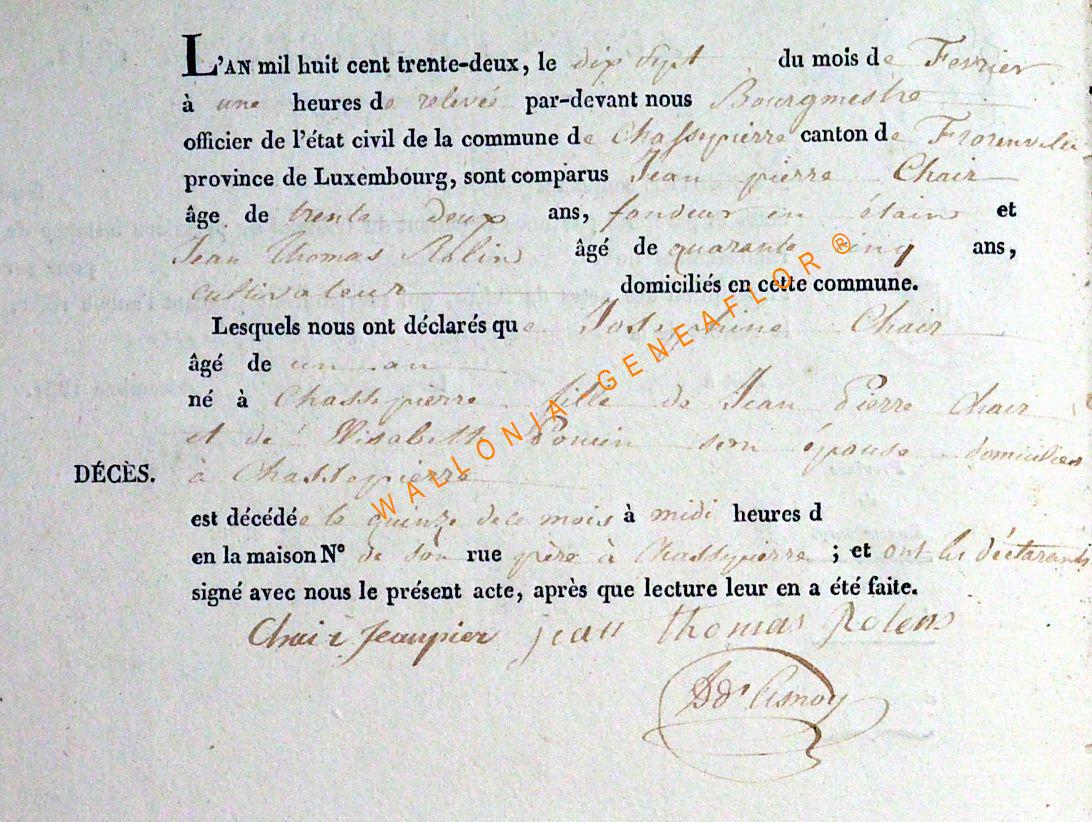 L'AN mil huit cent trente-deux, le dix sept du mois de Fevrier
à une heures de relevée par-devant nous Bourgmestre
officier de l'état civil de la commune de Chassepierre canton de Florenville
province de Luxembourg, sont comparus Jean pierre Chair
âge de trente deux ans, fondeur en étain et
Jean Thomas Rolin âgé de quarante cinq ans,
cultivateur domiciliés en cette commune.
Lesquels nous ont déclarés que Josephine Chair
âgé de un an
né à Chassepierre fille de Jean Pierre Chair
et de Elisabeth son épouse domiciliés
DÉCÈS. à Chassepierre
est décédée le quinze de ce mois à midi heures d
en la maison N° de son rue père à Chassepierre ; et ont les déclarants
signé avec nous le présent acte, après que lecture leur en a été faite.
Chair Jeanpier jean thomas Rolens
WALLONIA-GENEAFLOR ®